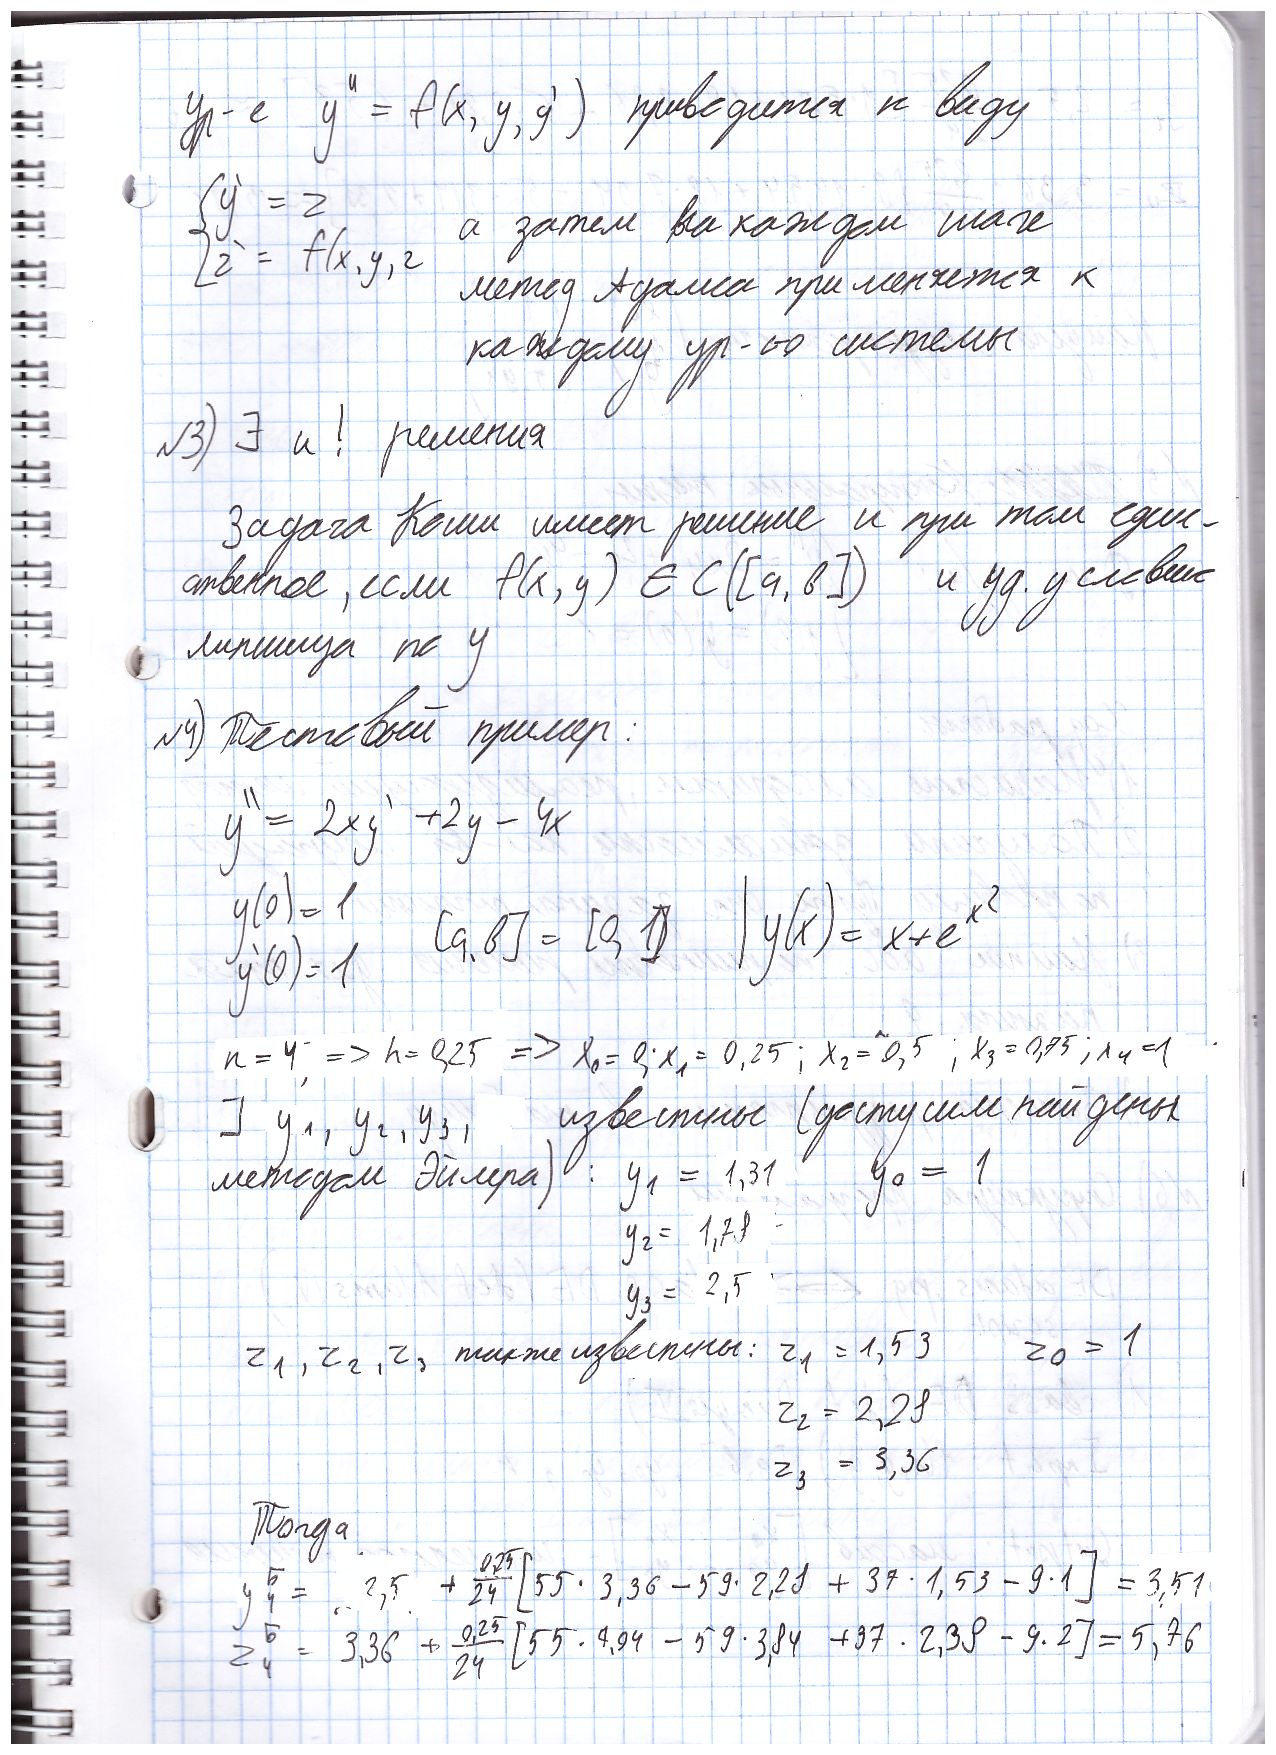 ур-е y'' = f(x, y, y') приводится к виду
{ y' = z
z' = f(x, y, z
а затем на каждом шаге
метод Адамса применяется к
каждому ур-ю системы
№3) ∃ и ! решения
Задача Коши имеет решение и при том един-
ственное, если f(x, y) ∈ C([a, b]) и уд. условию
липшица по y
№4) Тестовый пример:
y'' = 2xy' + 2y - 4x
y(0) = 1
y'(0) = 1
[a, b] = [0, 1] | y(x) = x + e^{x^2}
n = 4 => h = 0,25 => x₀ = 0; x₁ = 0,25; x₂ = 0,5; x₃ = 0,75; x₄ = 1
] y₁, y₂, y₃, известны (допустим найдены
методом Эйлера): y₁ = 1,31 y₀ = 1
y₂ = 1,78
y₃ = 2,5
z₁, z₂, z₃ также известны: z₁ = 1,53 z₀ = 1
z₂ = 2,28
z₃ = 3,36
Тогда
y₄^б = 2,5 + 0,25/24 [55 · 3,36 - 59 · 2,28 + 37 · 1,53 - 9 · 1] = 3,51
z₄^б = 3,36 + 0,25/24 [55 · 7,04 - 59 · 3,84 + 37 · 2,38 - 9 · 2] = 5,76